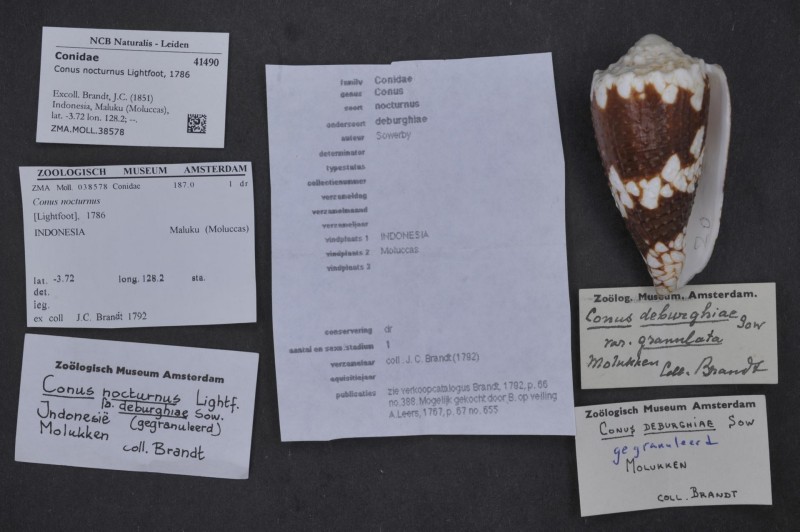 NCB Naturalis - Leiden
Conidae 41490
Conus nocturnus Lightfoot, 1786
Excoll. Brandt, J.C. (1851)
Indonesia, Maluku (Moluccas),
lat. -3.72 lon. 128.2; --.
ZMA.MOLL.38578
ZOOLOGISCH MUSEUM AMSTERDAM
ZMA Moll. 038578 Conidae 187.0 1 dr
Conus nocturnus
[Lightfoot], 1786
INDONESIA Maluku (Moluccas)
lat. -3.72 long. 128.2 sta.
det.
leg.
ex coll J.C. Brandt 1792
Zoölogisch Museum Amsterdam
Conus nocturnus Lightf.
deburghiae Sow.
Indonesië (gegranuleerd)
Molukken
coll. Brandt
family Conidae
genus Conus
soort nocturnus
ondersoort deburghiae
auteur Sowerby
determinator
typestatus
collectienummer
verzameldag
verzamelmaand
verzameljaar
vindplaats 1 INDONESIA
vindplaats 2 Moluccas
vindplaats 3
conservering dr
aantal en sexe/stadium 1
verzamelaar coll. J.C. Brandt (1792)
aquisitiejaar
publicaties zie verkoopcatalogus Brandt, 1792, p. 66
no.388. Mogelijk gekocht door B. op veiling
A.Leers, 1767, p. 67 no. 655
Zoölog. Museum. Amsterdam.
Conus deburghiae Sow
var. granulata
Molukken Coll. Brandt
Zoölogisch Museum Amsterdam
CONUS DEBURGHIAE SOW
gegranuleerd
MOLUKKEN
COLL. BRANDT